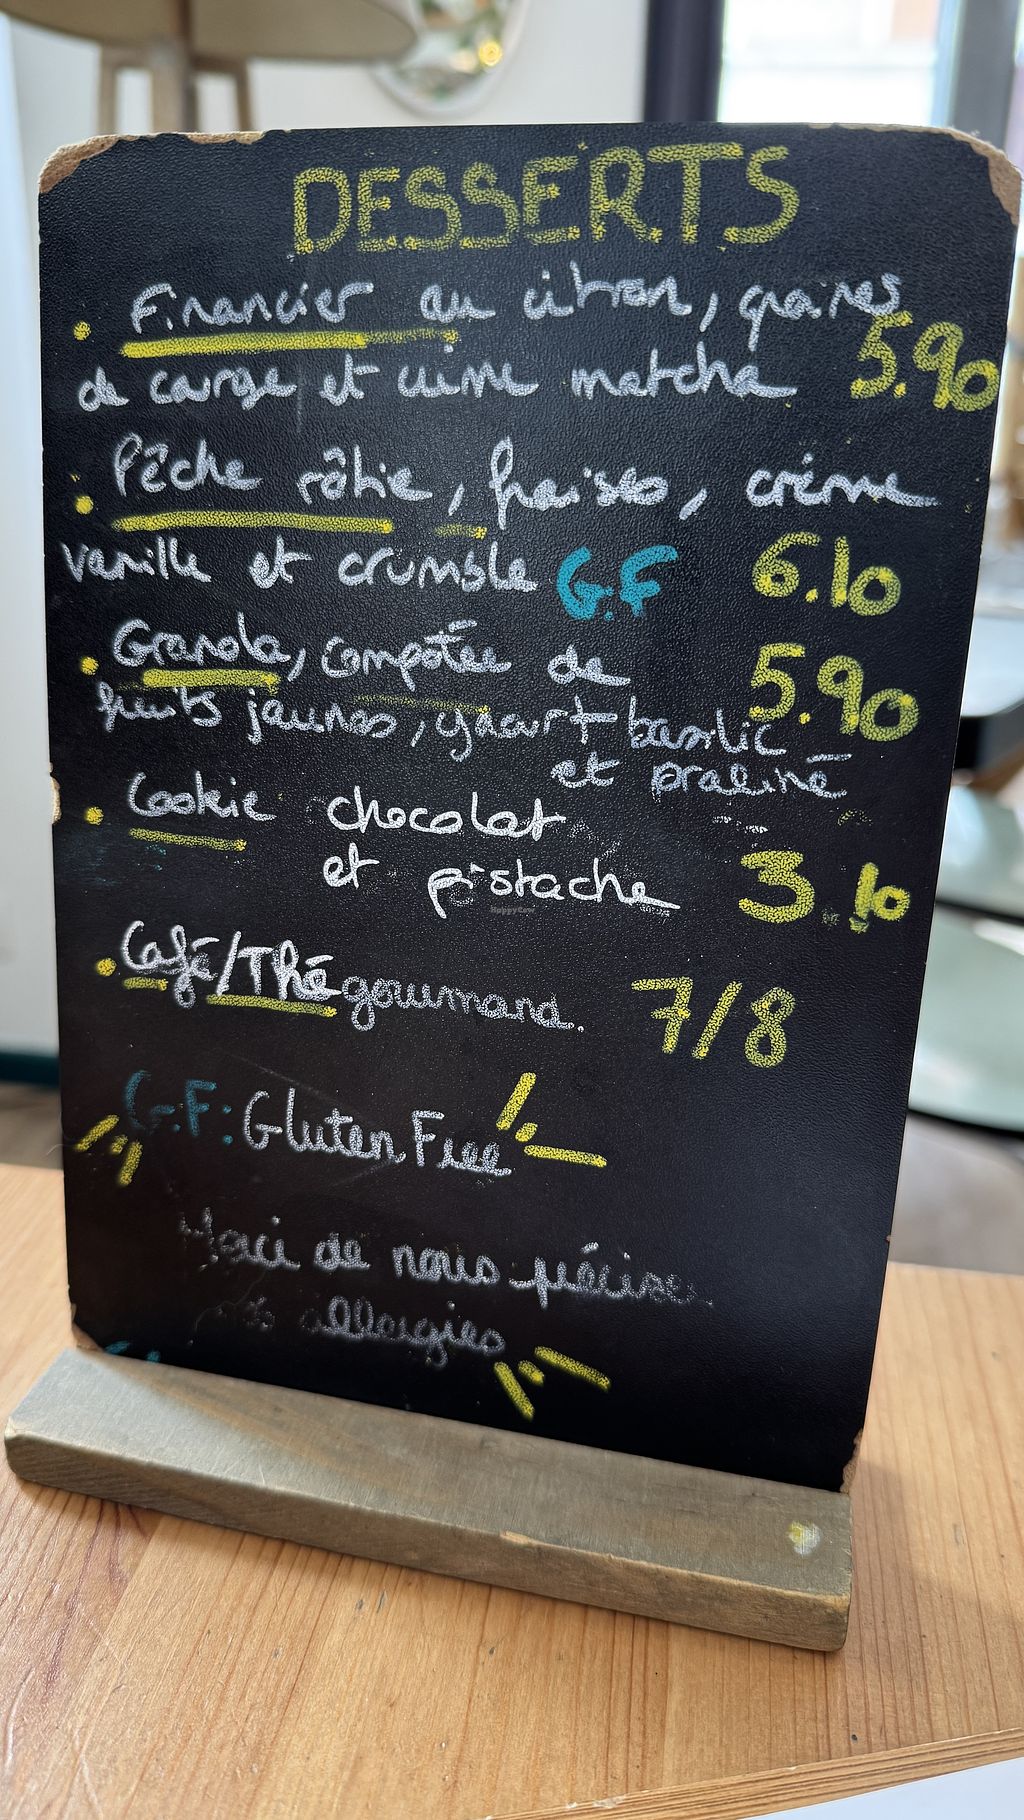 DESSERTS
• Financier au citron, graines
de courge et crème matcha 5.90
• Pêche rôtie, fraises, crème
vanille et crumble G.F 6.10
• Granola, compotée de 5.90
fruits jaunes, yaourt basilic
et praliné
• Cookie chocolat
et pistache 3.10
HappyCow
• Café/Thé gourmand. 7/8
G.F: Gluten Free
Merci de nous préciser
allergies